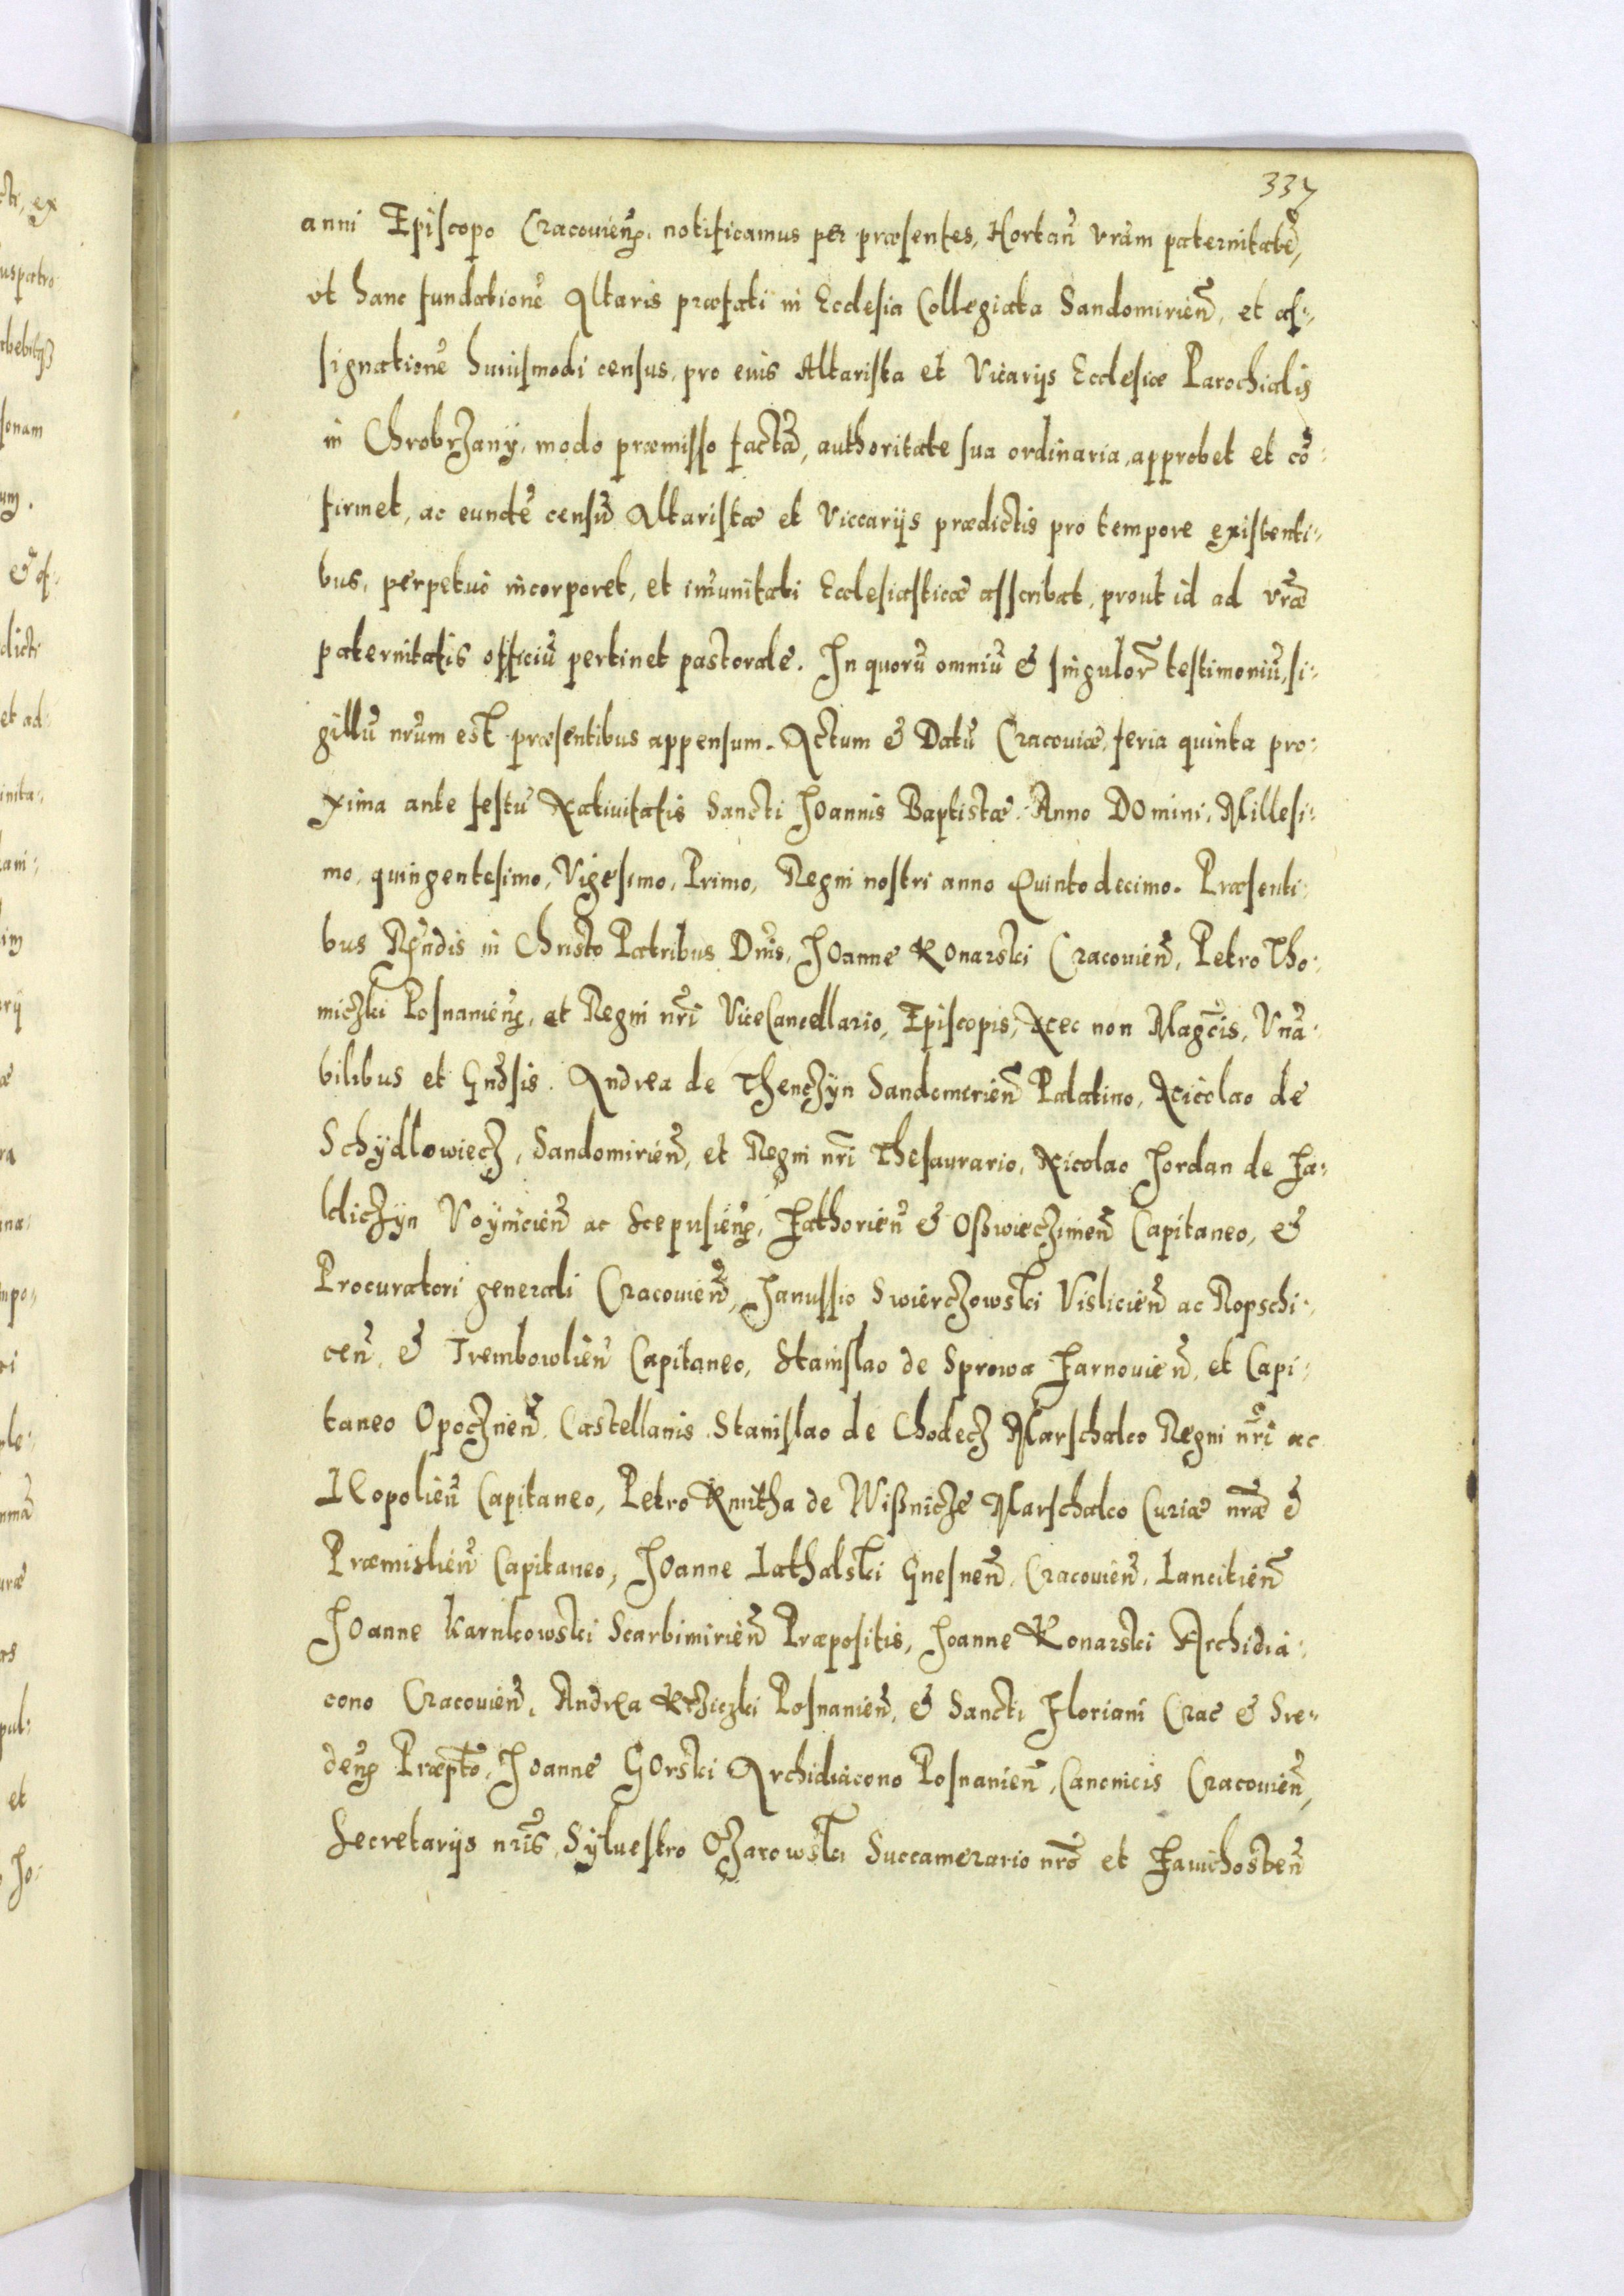 337
anni Episcopo Cracovien̄. notificamus per præsentes, Hortan̄ vrām paternitatē,
vt hanc fundationē Altaris præfati in Ecclesia Collegiata Sandomirien̄, et as:
signationē huiusmodi census, pro eius Altarista et Vicarijs Ecclesiæ Parochialis
in Chrobrzany, modo præmisso factā, authoritate sua ordinaria, approbet et cō:
firmet, ac eundē censū Altaristæ et Viccarijs prædictis pro tempore existenti:
bus, perpetuò incorporet, et im̄unitati Ecclesiasticæ asscribat, prout id ad vrǣ
paternitatis officiū pertinet pastorale. In quorū omniū & singulor̄ testimoniū, si:
gillū nrūm est præsentibus appensum. Actum & Datū Cracoviæ, feria quinta pro:
xima ante festū Nativitatis Sancti Joannis Baptistæ. Anno Domini, Millesi:
mo, quingentesimo, Vigesimo, Primo, Regni nostri anno Quinto decimo. Præsenti:
bus Rn̄dis in Christo Patribus Dn̄is, Joanne Konarski Cracovien̄, Petro Tho:
miczki Posnanien̄, et Regni nrī ViceCancellario, Episcopis, Nec non Magc̄is, Vnā:
bilibus et Gn̄dsis. Andrea de Thenczÿn Sandomirien̄ Palatino, Nicolao de
Schÿdlowiecz, Sandomirien̄, et Regni nrī Thesaurario, Nicolao Jordan de Za:
kliczÿn Voÿnicien̄ ac Scepusien̄, Zathorien̄ & Oßwieczimen̄ Capitaneo, &
Procuratori generali Cracovien̄, Janussio Swierczowski Vislicien̄ ac Ropschi:
cen̄ & Trembowlien̄ Capitaneo, Stanislao de Sprowa Zarnovien̄, et Capi:
taneo Opocznen̄, Castellanis. Stanislao de Chodecz Marschalco Regni nrī ac
Leopolien̄ Capitaneo, Petro Kmitha de Wißnicze Marschalco Curiæ nrǣ &
Præmislien̄ Capitaneo, Joanne Lathalski Gnesnen̄, Cracovien̄, Lancitien̄
Joanne Karnkowski Scarbimirien̄ Præpositis, Joanne Konarski Archidia:
cono Cracovien̄, Andrea Krziczki Posnanien̄, & Sancti Floriani Crac & Sre:
den̄ Præptō, Joanne Gorski Archidiacono Posnanien̄, Canonicis Cracovien̄,
Secretarijs nrīs, Sÿluestro Ozarowski Succamerario nrō et Zawichosten̄